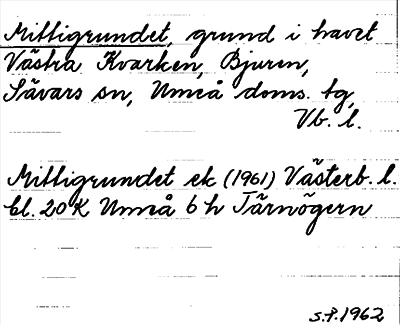 Mittigrundet, grund i havet
Västra Kvarken, Bjuren,
Sävars sn, Umeå doms. tg,
Vb. l.
Mittigrundet ek (1961) Västerb. l.
bl. 20 K Umeå 6 h Tärnögern
S.P. 1962